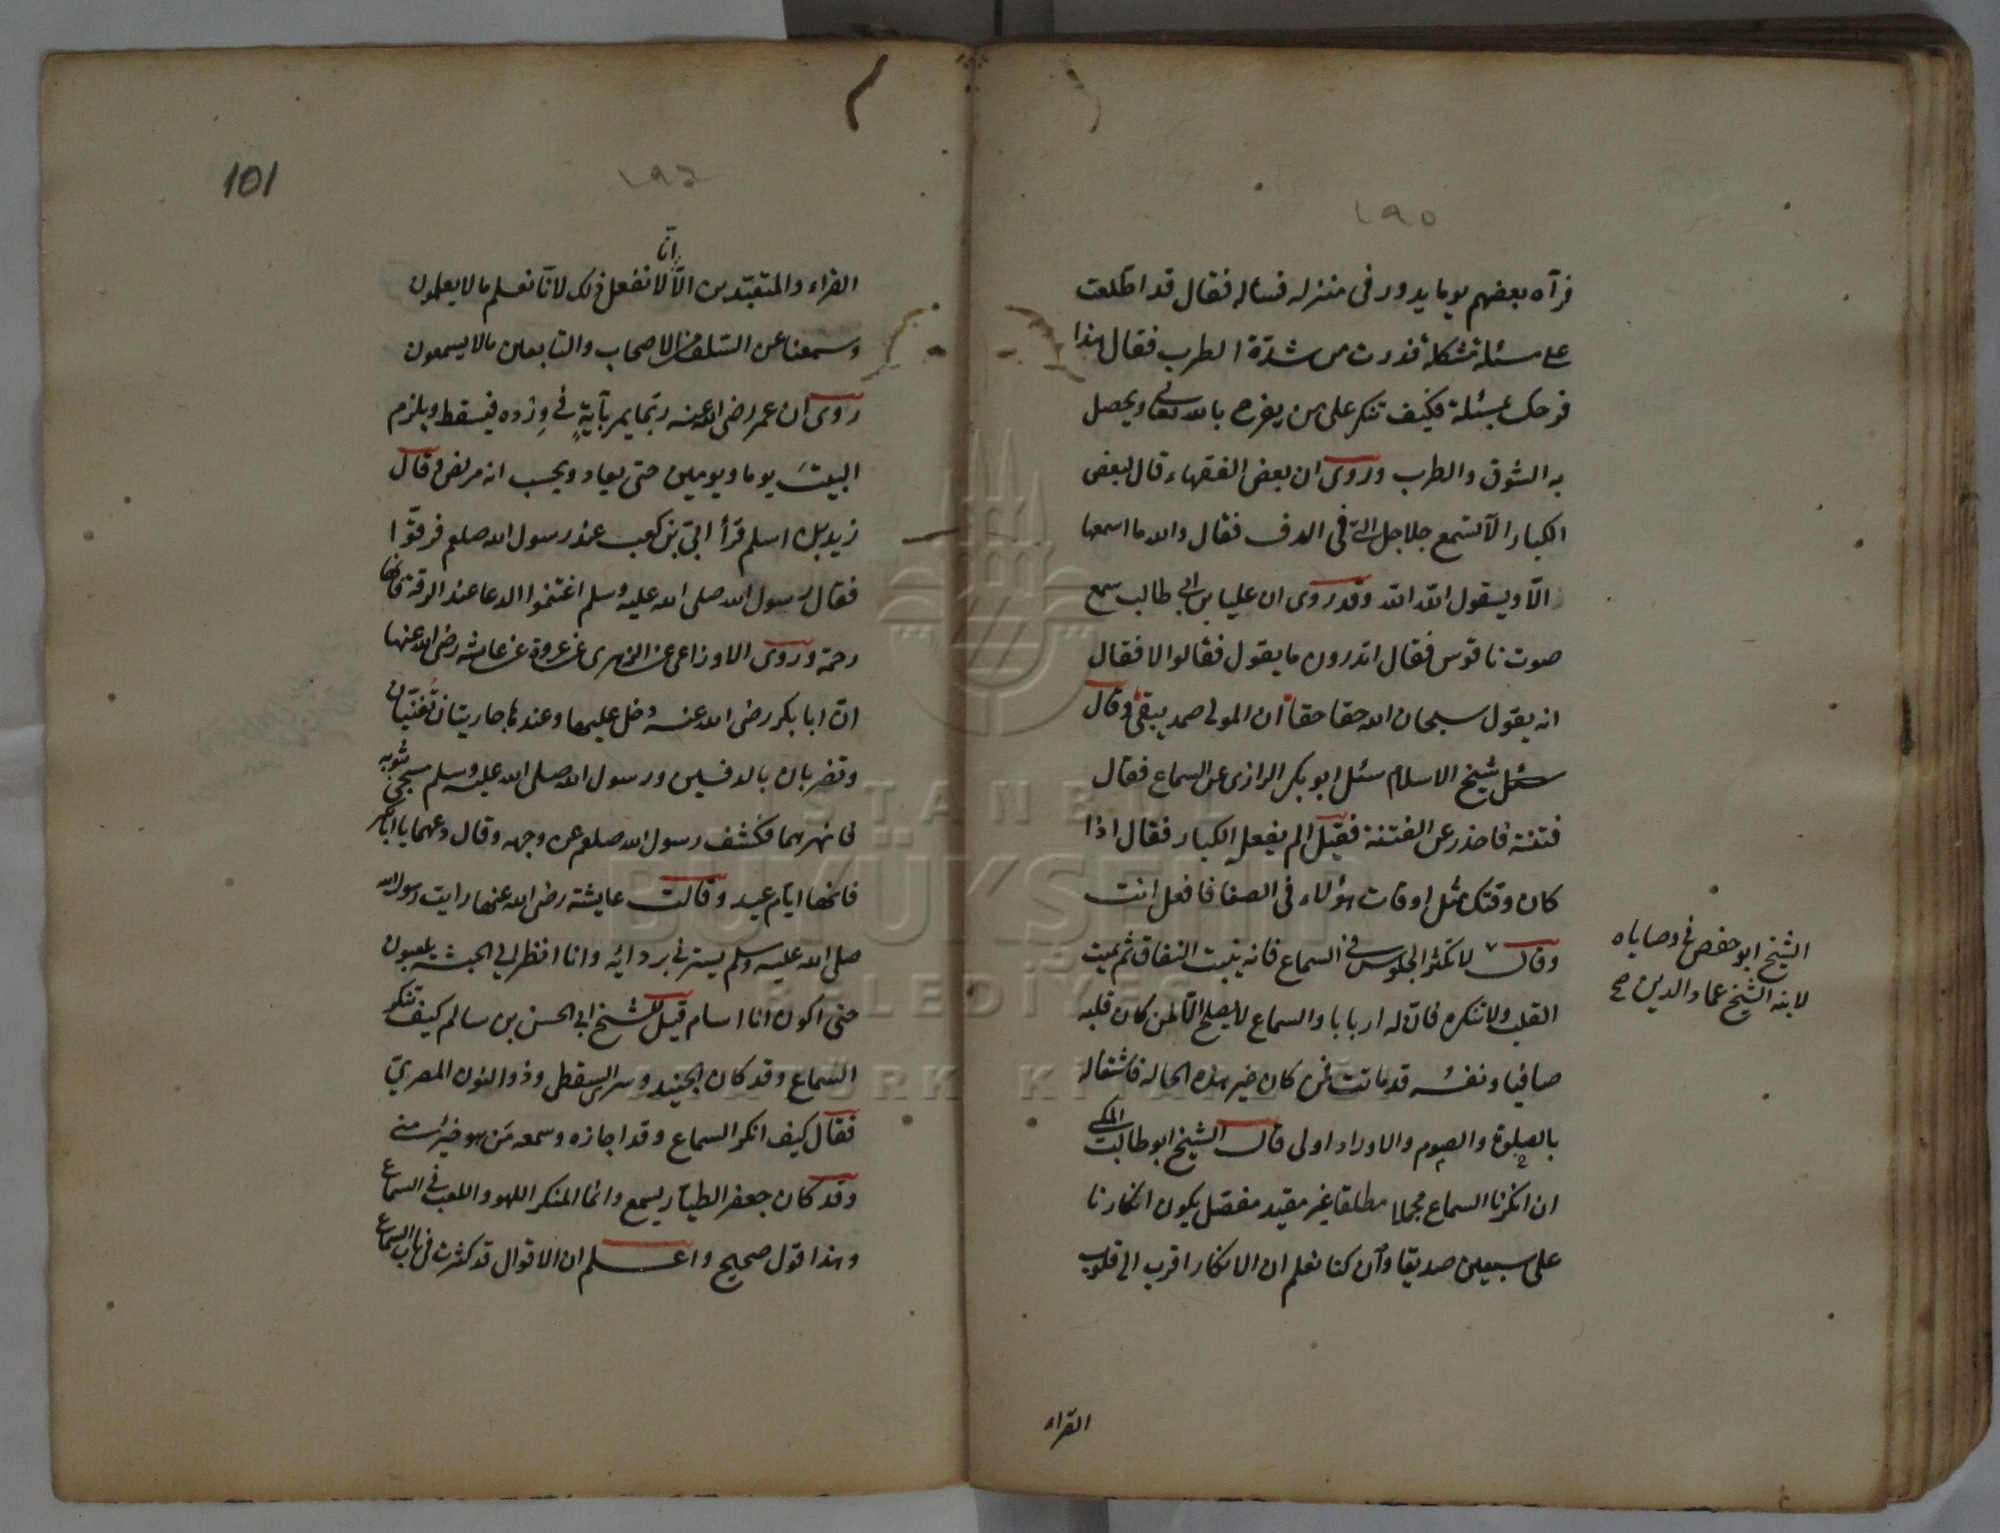 ١٩٥
فرآه بعضهم يوما يدور فى منزله فساله فقال قد اطلعت
على مسئلة مشكلة فدرت من شدة الطرب فقال هذا
فرحك بمسئلة فكيف تنكر على من يفرح بالله تعالى ويحصل
به الشوق والطرب وروى ان بعض الفقهاء قال لبعض
الكبار الا تسمع جلاجل التى فى الدف فقال والله ما اسمعها
الّا ويقول الله الله وقد روى ان عليا بن ابى طالب سمع
صوت ناقوس فقال اتدرون ما يقول فقالوا لا فقال
انه يقول سبحان الله حقا حقا ان المولى صمد يبقى وقال
شيخ الاسلام سئل ابو بكر الرازى عن السماع فقال
فتنة فاحذر عن الفتنة فقيل الم يفعل الكبار فقال اذا
كان وقتك مثل اوقات هؤلاء فى الصفا فافعل انت
وقال لا تكثر الجلوس فى السماع فانه ينبت النفاق ثم يميت
القلب ولا تنكره فان له اربابا والسماع لا يصلح الّا لمن كان قلبه
صافيا ونفسه قد ماتت فمن كان غير هذه الحاله فاشتغاله
بالصلوة والصوم والاوراد اولى قال الشيخ ابو طالب المكى
ان انكرنا السماع مجملا مطلقا غير مقيد مفصل يكون انكارنا
على سبعين صديقا وان كنا نعلم ان الانكار اقرب الى قلوب
الشيخ ابو حفص فى وصاياه
لابنه الشيخ عماد الدين صح
القراء
101
١٩٦
انّا
القراء والمتعبّدين الّا لا نفعل ذلك لانّا نعلم ما لا يعلمون
وسمعنا عن السّلف من الاصحاب والتابعين ما لا يسمعون
روى ان عمر رضى الله عنه ربّما يمر بآيةٍ فى وِرْده فيسقط ويلزم
البيتَ يوما ويومين حتى يعاد ويحسب انه مريض وقال
زيد بن اسلم قرأ ابىّ بن كعب عند رسول الله صلعم فرقّوا
فقال رسول الله صلى الله عليه وسلم اغتنموا الدعا عند الرقة فانها
رحمة وروى الاوزاعى عن الزهرى عن عروة عن عائشه رضى الله عنها
انّ ابا بكر رضى الله عنه دخل عليها وعندها جاريتان تُغنّيان
وتضربان بالدفين ورسول الله صلى الله عليه وسلم مسجّى بثوبه
فانهرهما فكشف رسول الله صلعم عن وجهه وقال دعهما يا ابا بكر
فانها ايّام عيد وقالت عايشة رضى الله عنها رايت رسول الله
صلى الله عليه وسلم يسترنى بردائه وانا انظر الى الحبشة يلعبون
حتى اكون انا اسام قيل للشيخ ابى الحسن بن سالم كيف تنكر
السماع وقد كان الجنيد وسرى السقطى وذو النون المصرىّ
فقال كيف انكر السماع وقد اجازه وسمعه مَن هو خيرٌ منى
وقد كان جعفر الطيّار يسمع وانما المنكر اللهو واللعب فى السماع
وهذا قول صحيح واعلم ان الاقوال قد كثرت فى باب السماع